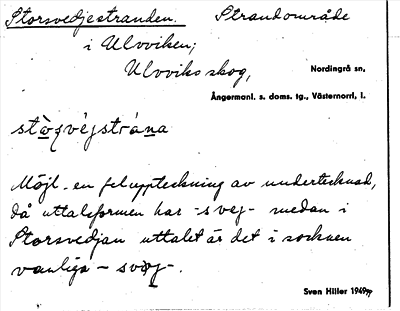 Storsvedjestranden. Strandområde
i Ulvviken;
Ulvviks skog, Nordingrå sn,
Ångermanl. s. doms. tg., Västernorrl, l.
Möjl. en feluppteckning av undertecknad,
då uttalsformen har -svej- medan i
Storsvedjan uttalet är det i socknen
vanliga -
Sven Hiller 1949